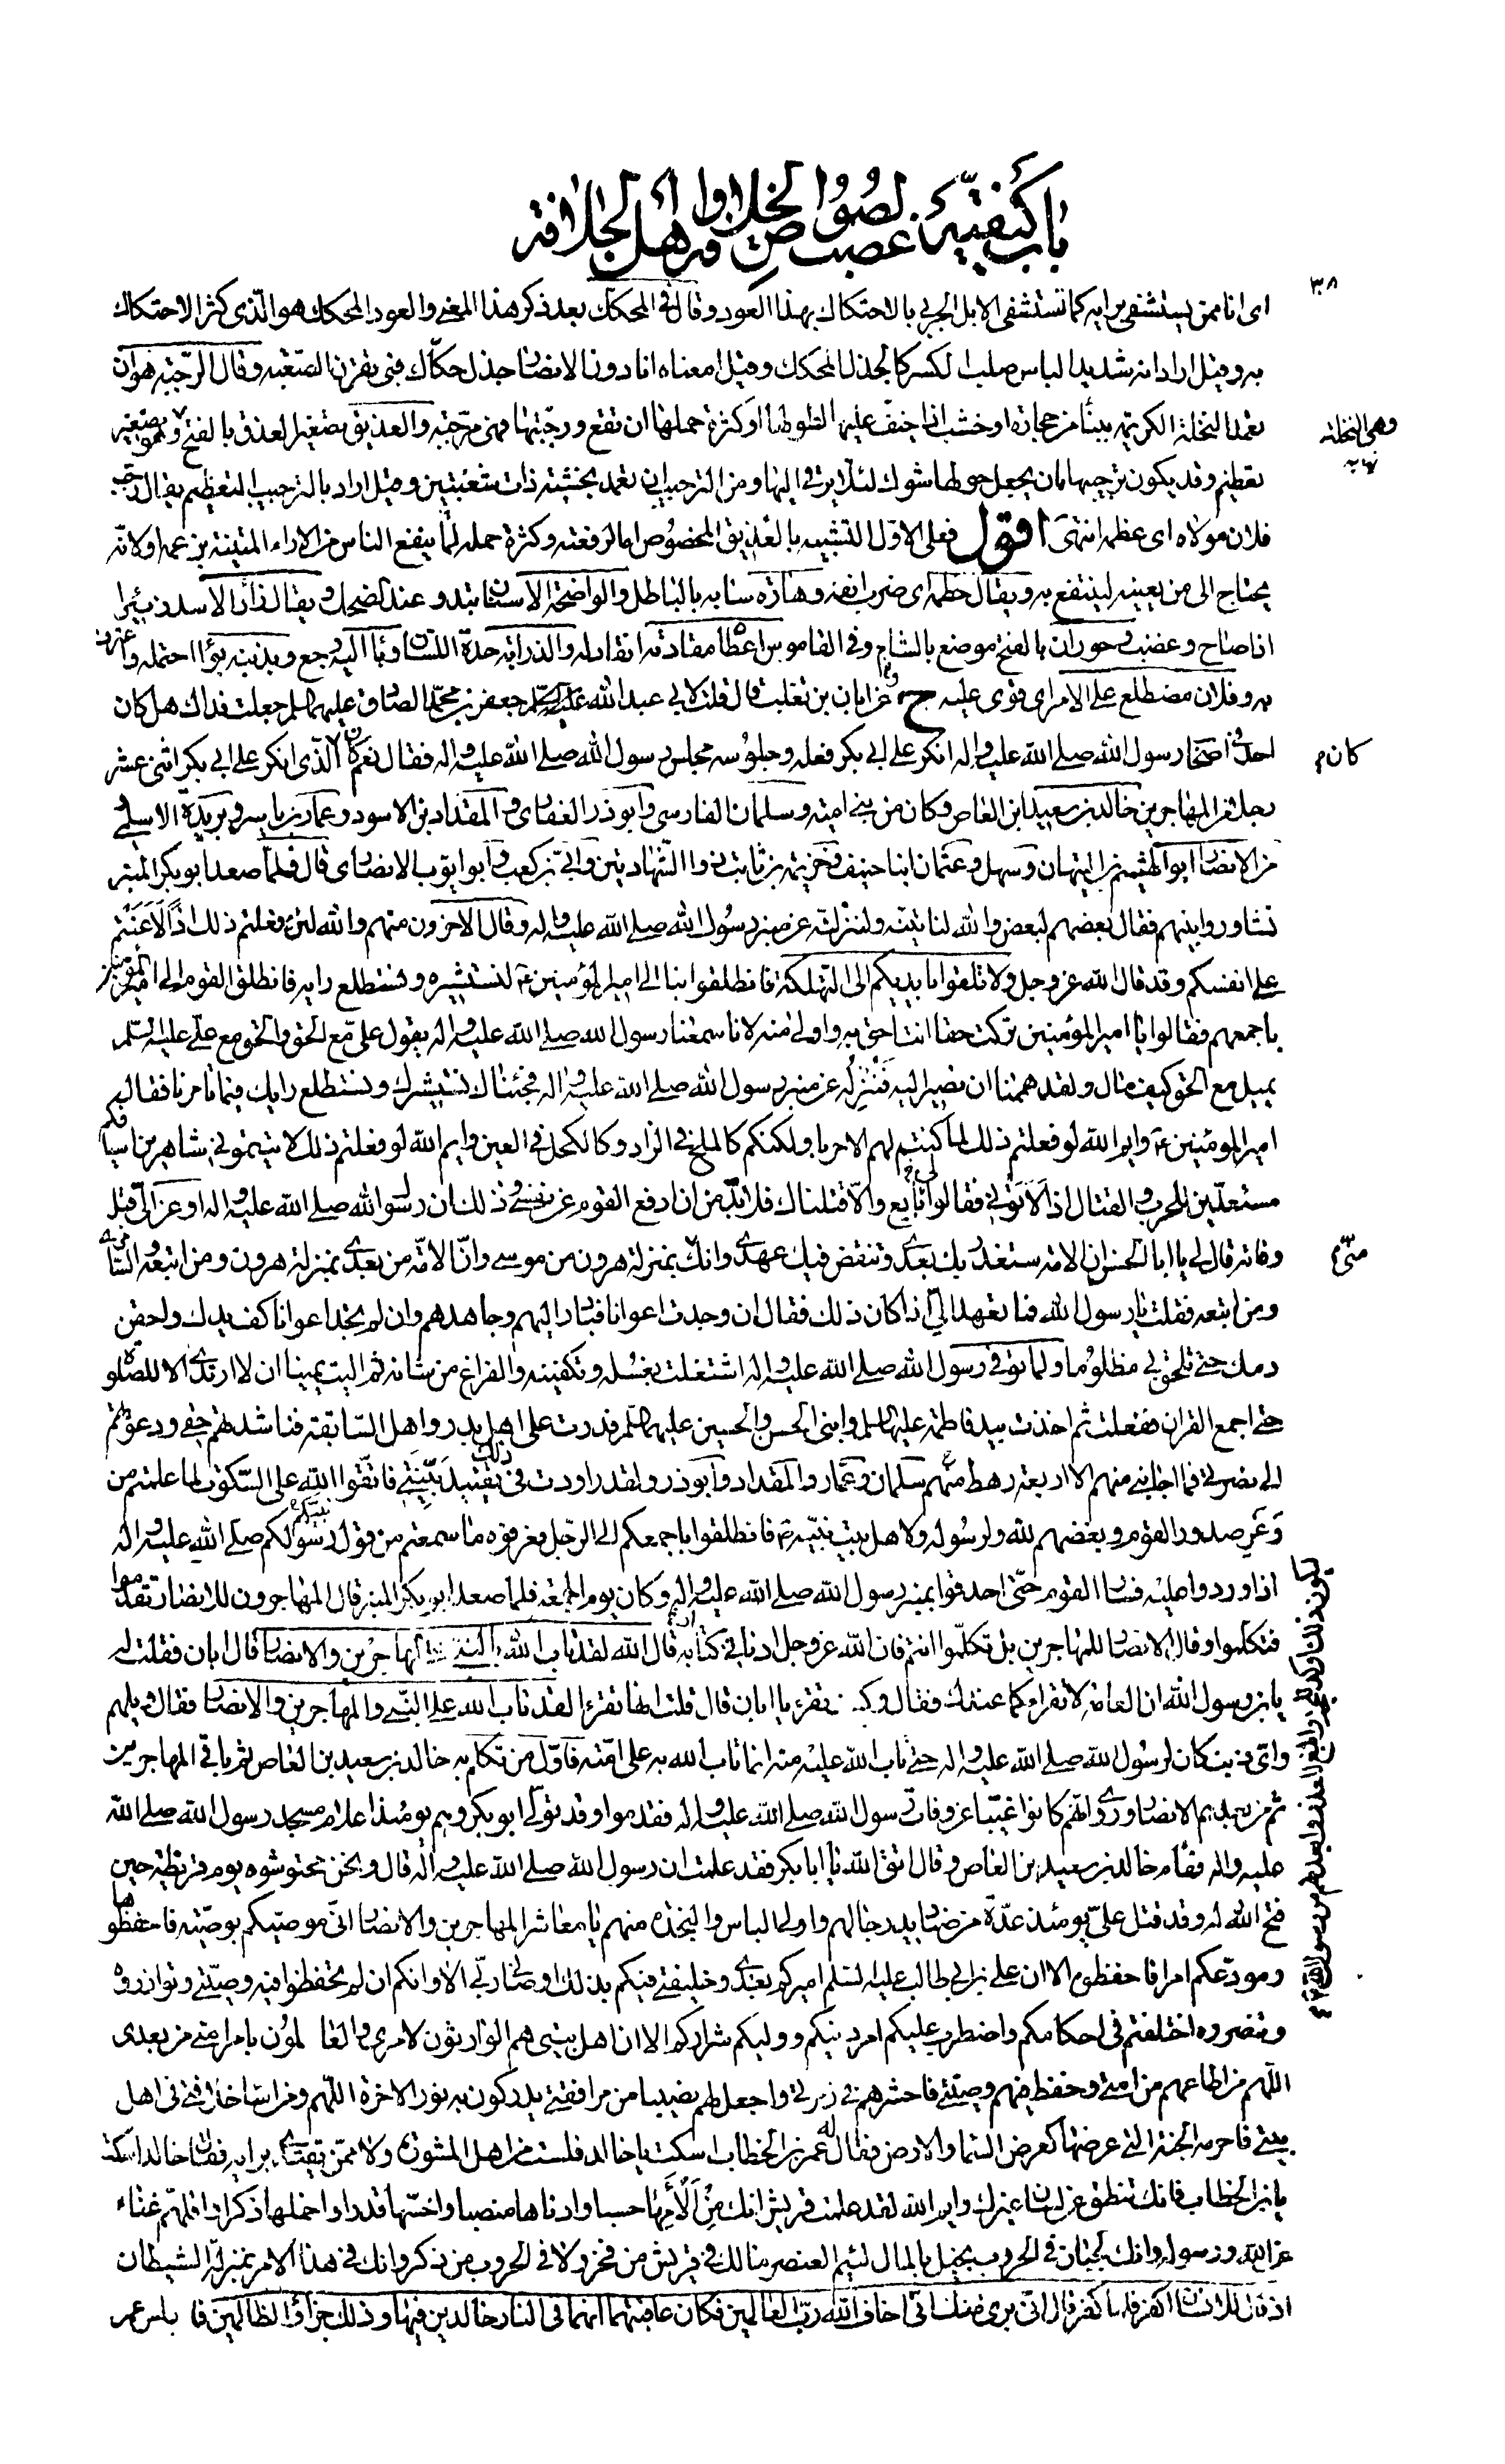 باب كيفية غصب لصوص الخلافة واهل الجلافة
٣٨
اى انا ممن يستشفى برايه كما تستشفى الابل الجربى بالاحتكاك بهذا العود وقال فى المحكك بعد ذكر هذا المعنى والعود المحكك هو الّذى كثر الاحتكاك
به وقيل اراد انه شديد الباس صلب الكسر كالجذل المحكك وقيل معناه انا دون الانصار جذل حكّاك فبى تقرن الصّعبة وقال الرّجبة هو ان
تعمد النخلة الكريمة ببناء من حجارة او خشب اذا خيف عليها لطولها او كثرة حملها ان تقع ورجّبتها فهى مرجّبة والعذيق تصغير العذق بالفتح وهو تصغير
وهى النخلة
تعظيم وقد يكون ترجيبها بان يجعل حولها شوك لئلّا يرقى اليها ومن الترجيب ان تعمد بخشبة ذات شعبتين وقيل اراد بالترجيب التعظيم يقال رجب
فلان مولاه اى عظمه انتهى اقول فعلى الاوّل التشبيه بالعذيق المخصوص اما لرفعته وكثرة حمله لما ينفع الناس من الاراء المتينة بزعمه او لانّه
يحتاج الى من يعينه لينتفع به ويقال خطمه اى ضرب انفه وهاترّه سابه بالباطل والواضحة الاسنان تبدو عند الضحك ويقال زأر الاسد زئيرا
اذا صاح وغضب وحوران بالفتح موضع بالشام وفى القاموس اعطاه مقادته انقاد له والذرابة حدة اللسان وباء اليه رجع وبذنبه بوءا احتمله واعترف
به وفلان مضطلع على الامر اى قوى عليه ج وعن ابان بن تغلب قال قلت لابى عبد الله جعفر بن محمّد الصادق عليهما السلم جعلت فداك هل كان
احد فى اصحاب رسول الله صلى الله عليه واله انكر على ابى بكر فعله وجلوسه مجلس رسول الله صلى الله عليه واله فقال نعم كان الّذى انكر على ابى بكر اثنى عشر
كان م
رجلا من المهاجرين خالد بن سعيد ابن العاص وكان من بنى امية وسلمان الفارسى وابو ذر الغفارى والمقداد بن الاسود وعمار بن ياسر وبريدة الاسلمى
من الانصار ابو الهيثم بن التيهان وسهل وعثمان ابنا حنيف وخزيمة بن ثابت ذو الشهادتين وابى بن كعب وابو ايوب الانصارى قال فلما صعد ابو بكر المنبر
تشاوروا بينهم فقال بعضهم لبعض والله لناتينّه ولننزلنّه عن منبر رسول الله صلى الله عليه واله وقال الاخرون منهم والله لئن فعلتم ذلك اذا لاعنتم
على انفسكم وقد قال الله عز وجل ولا تلقوا بايديكم الى التهلكة فانطلقوا بنا الى امير المؤمنين ع لنستشيره ونستطلع رايه فانطلق القوم الى امير المؤمنين
باجمعهم فقالوا يا امير المؤمنين تركت حقا انت احق به واولى منه لانا سمعنا رسول الله صلى الله عليه واله يقول علىّ مع الحق والحق مع على عليه السّلم
يميل مع الحق كيف مال ولقد هممنا ان نصير اليه فننزله عن منبر رسول الله صلى الله عليه واله فجئناك لنستشيرك ونستطلع رايك فيما تامرنا فقال
امير المؤمنين ع وايم الله لو فعلتم ذلك لما كنتم لهم الا حربا ولكنكم كالملح فى الزاد وكالكحل فى العين وايم الله لو فعلتم ذلك لاتيتمونى شاهرين اسيافكم
مستعدّين للحرب والقتال اذا لاتونى فقالوا لى بايع والّا قتلناك فلا بدّ من ان ادفع القوم عن نفسى وذلك ان رسول الله صلى الله عليه واله اوعز الىّ قبل
وفاته قال لى يا ابا الحسن ان الامة ستغدر بك بعدى وتنقض فيك عهدى وانك منّى بمنزلة هرون من موسى وانّ الامّة من بعدى بمنزلة هرون ومن اتبعه والسّامرى
منّى م
ومن اتبعه فقلت يا رسول الله فما تعهد الىّ اذا كان ذلك فقال ان وجدت اعوانا فبادر اليهم وجاهدهم وان لم تجد اعوانا كف يدك واحقن
دمك حتى تلحق بى مظلوما ولما توفى رسول الله صلى الله عليه واله اشتغلت بغسله وتكفينه والفراغ من شانه ثم اليت يمينا ان لا ارتدى الا للصلوة
حتى اجمع القران ففعلت ثم اخذت بيد فاطمة عليها السلم وابنى الحسن والحسين عليهما السلم فدرت على اهل بدر واهل السّابقة فناشدتهم حقى ودعوتهم
الى نصرتى فما اجابنى منهم الا اربعة رهط منهم سلمان وعمار والمقداد وابو ذر ولقد راودت فى ذلك تقييد بيّنتى فاتقوا الله على السّكوت لما علمتم من
وغر صدور القوم وبغضهم لله ولرسوله ولاهل بيت نبيّه ع فانطلقوا باجمعكم الى الرّجل فعرفوه ما سمعتم من قول رسولكم صلى الله عليه واله
ليكون ذلك اوكد للحجة وابلغ للعذر وابعد لهم من رسول الله
اذا وردوا عليه فسار القوم حتّى احدقوا بمنبر رسول الله صلى الله عليه واله وكان يوم الجمعة فلما صعد ابو بكر المنبر قال المهاجرون للانصار تقدموا
فتكلموا وقال الانصار للمهاجرين بل تكلّموا انتم فان الله عز وجل ادناكم فى كتابه قال الله لقد تاب الله بالنبى على المهاجرين والانصار قال ابان فقلت له
يابن رسول الله ان العامّة لا تقرء كما عندك فقال وكيف تقرء يا ابان قال قلت انها تقرء لقد تاب الله على النّبى والمهاجرين والانصار فقال ويلهم
واىّ ذنب كان لرسول الله صلى الله عليه واله حتى تاب الله عليه منه انما تاب الله به على امّته فاوّل من تكلّم به خالد بن سعيد بن العاص ثم باقى المهاجرين
ثم من بعدهم الانصار وروى انهم كانوا غيّبا عن وفاة رسول الله صلى الله عليه واله فقدموا وقد تولّى ابو بكر وهم يومئذ اعلام مسجد رسول الله صلى الله
عليه واله فقام خالد بن سعيد بن العاص وقال اتق الله يا ابا بكر فقد علمت ان رسول الله صلى الله عليه واله قال ونحن محتوشوه يوم قريظة حين
فتح الله له وقد قتل علىّ يومئذ عدّة من صناديد رجالهم واولى الباس والنجدة منهم يا معاشر المهاجرين والانصار انّى موصيكم بوصيّة فاحفظوها
ومودّعكم امرا فاحفظوه الا ان على بن ابى طالب عليه السّلم اميركم بعدى وخليفتى فيكم بذلك اوصانى ربّى الا وانكم ان لم تحفظوا فيه وصيّتى وتوازروه
وتنصروه اختلفتم فى احكامكم واضطرب عليكم امر دينكم ووليكم شراركم الا ان اهل بيتى هم الوارثون لامرى والعالمون بامر امتى من بعدى
اللّهم من اطاعهم من امتى وحفظ فيهم وصيّتى فاحشرهم فى زمرتى واجعل لهم نصيبا من مرافقتى يدركون به نور الاخرة اللّهم ومن اساء خلافتى فى اهل
بيتى فاحرمه الجنة التى عرضها كعرض السّماء والارض فقال له عمر بن الخطاب اسكت يا خالد فلست من اهل المشورة ولا ممّن يقتدى برايه فقال خالد اسكت
يابن الخطاب فانك تنطق عن لسان غيرك وايم الله لقد علمت قريش انك من الأمها حسبا وادناها منصبا واخسّها قدرا واخملها ذكرا واقلهم غناء
عن الله ورسوله وانك لجبان فى الحروب بخيل بالمال لئيم العنصر مالك فى قريش من فخر ولا فى الحروب من ذكر وانك فى هذا الامر بمنزلة الشيطان
اذ قال للانسان اكفر فلما كفر قال انّى برىء منك انّى اخاف الله ربّ العالمين فكان عاقبتهما انهما فى النار خالدين فيها وذلك جزاؤا الظالمين فابلس عمر